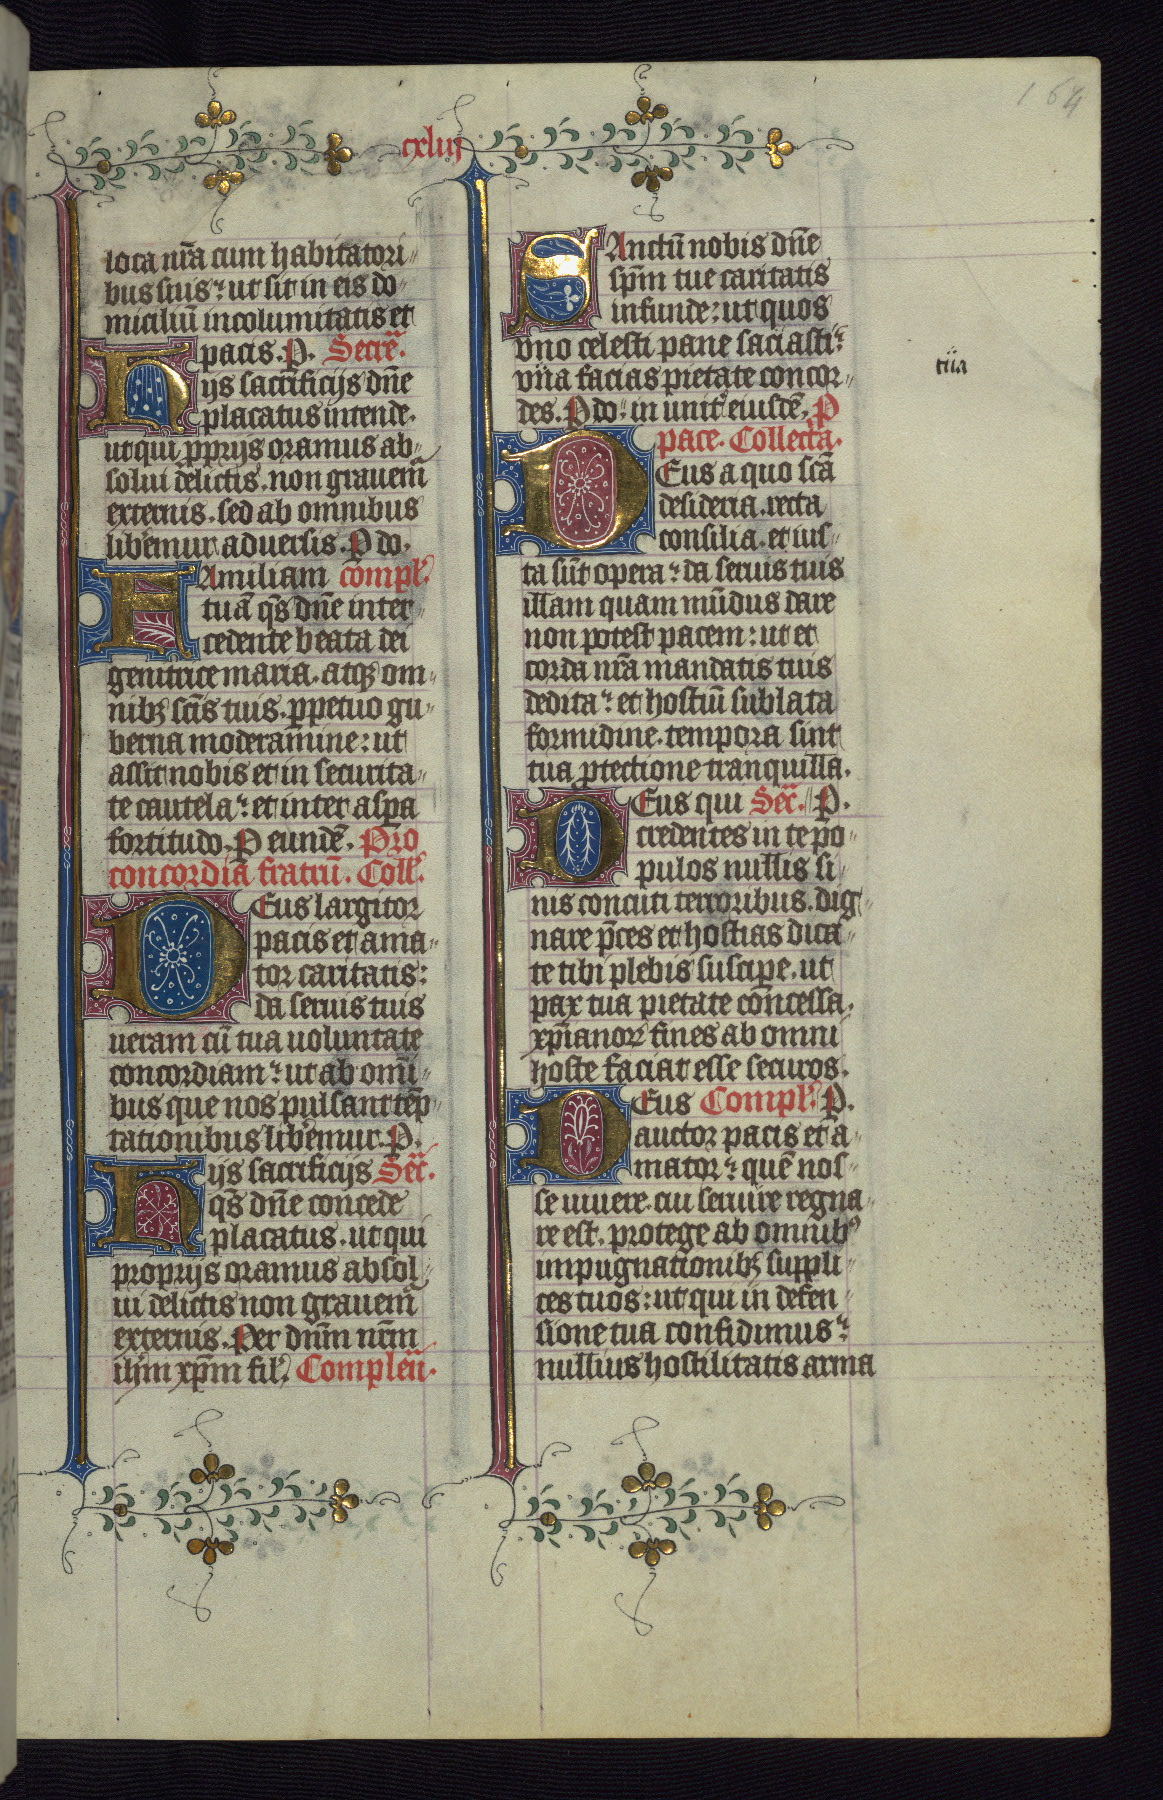 164
cxliij
loca nr̄a cum habitatori
bus suis: ut sit in eis do
miciliū incolumitatis et
pacis. P. Secre.̄
Hijs sacrificijs dn̄e
placatus intende.
ut qui pprijs oramus ab
solui delictis. non grauem̄
externis. sed ab omnibus
liberemur aduersis. P do.
FAmiliam compl'.
tuā qs̄ dn̄e inter
cedente beata dei
genitrice maria. atqȝ om
nibȝ scīs tuis. ppetuo gu
berna moderamine: ut
assit nobis et in securita
te cautela: et inter aspa
fortitudo. P eundē. Pro
concordia fratrū. Coll'.
DEus largitor
pacis et ama
tor caritatis:
da seruis tuis
ueram cū tua uoluntate
concordiam: ut ab omī
bus que nos pulsant tēp
tationibus liberemur. P.
Hijs sacrificijs Sec̄.
qs̄ dn̄e concede
placatus. ut qui
proprijs oramus absol
ui delictis non grauem̄
externis. Per dnm̄ nrm̄
ihm̄ xpm̄ fil'. Complen̄.
SAnctū nobis dn̄e
spm̄ tue caritatis
infunde: ut quos
vno celesti pane saciasti:
vn̄a facias pietate concor
des. P do: in unit' eiusdē. P
pace. Collecta.
DEus a quo scā
desideria. recta
consilia. et ius
ta sūt opera: da seruis tuis
illam quam mūdus dare
non potest pacem: ut et
corda nr̄a mandatis tuis
dedita: et hostiū sublata
formidine. tempora sint
tua ptectione tranquilla.
DEus qui Sec̄. P.
credentes in te po
pulos nullis si
nis concuti terroribus. dig
nare pc̄es et hostias dica
te tibi plebis suscipe. ut
pax tua pietate concessa.
xp̄ianorȝ fines ab omni
hoste faciat esse securos.
DEus Compl'. P.
auctor pacis et a
mator: quē nos
se uiuere. cui seruire regna
re est. protege ab omnibꝰ
impugnationibȝ suppli
ces tuos: ut qui in defen
sione tua confidimus:
nullius hostilitatis arma